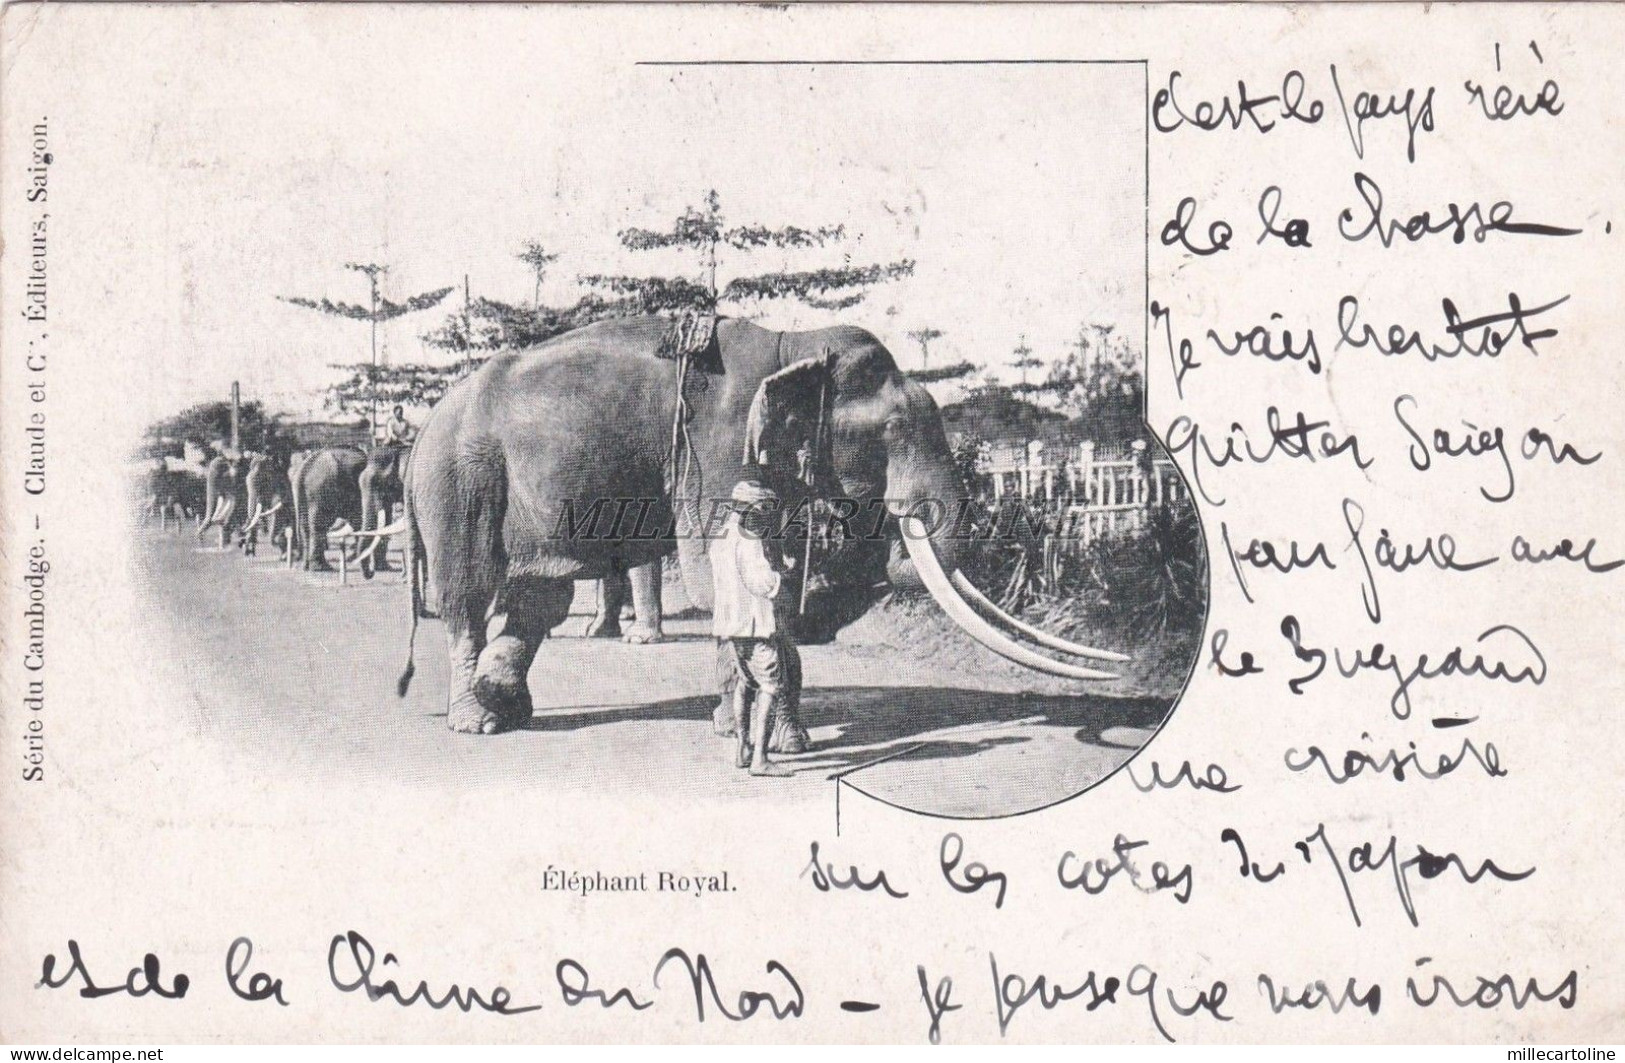 Série du Cambodge. – Claude et Cⁱᵉ, Éditeurs, Saigon.
MILLECARTOLINE
Éléphant Royal.
c'est le pays rêvé
de la chasse.
Je vais bientot
quitter Saigon
pour faire avec
le Bugeaud
une croisière
sur les cotes du Japon
et de la Chine du Nord – je pense que nous irons
www.millecartoline.com
millecartoline.com